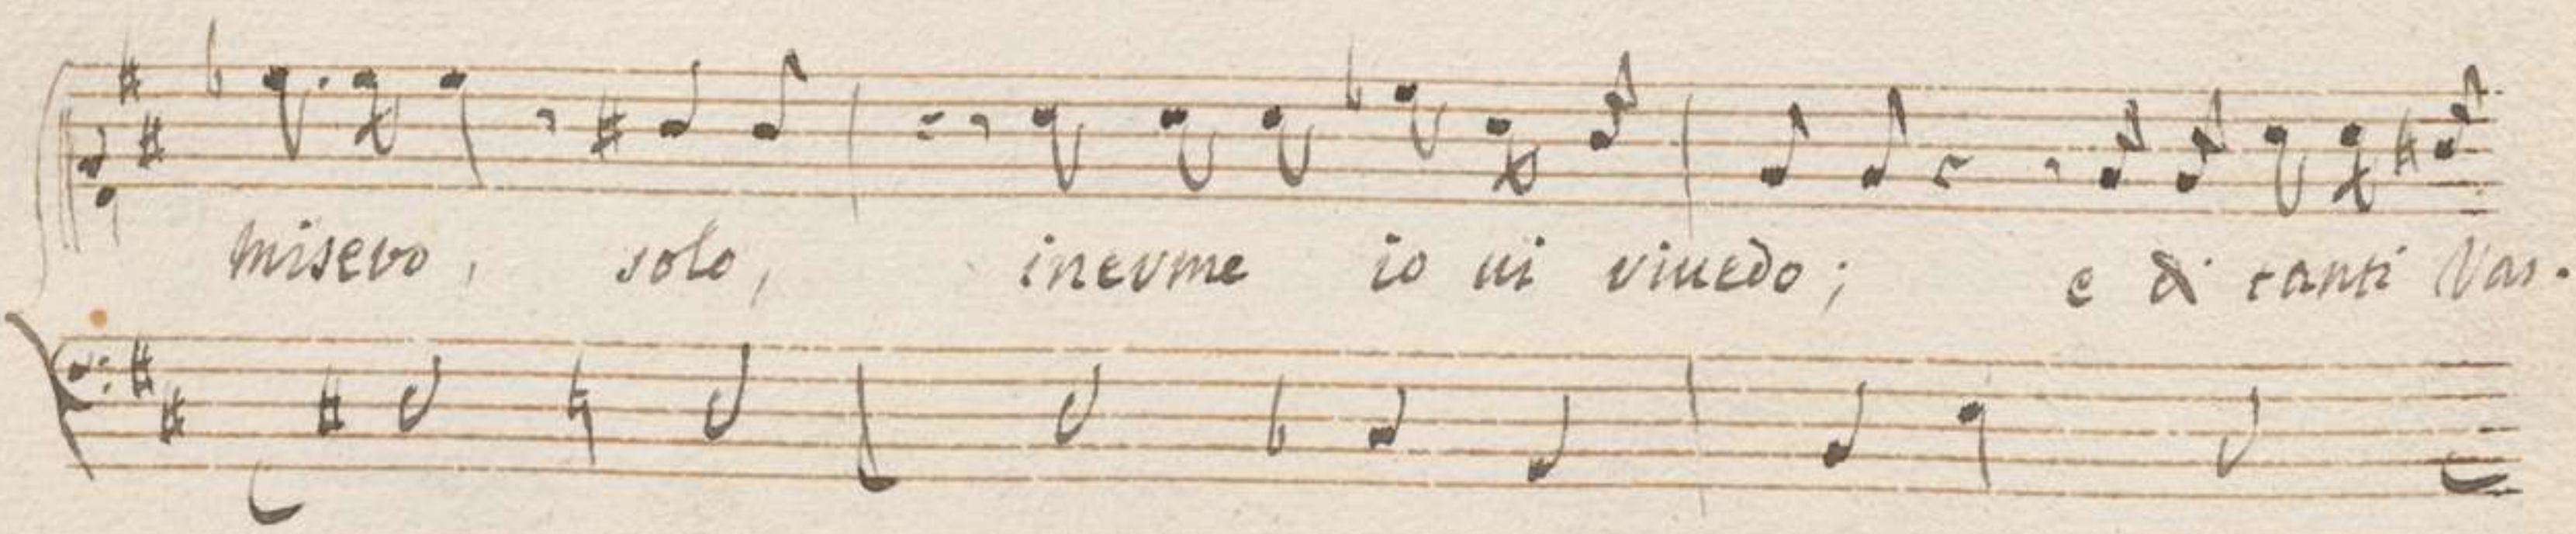 misero, solo, inerme io vi rivedo; e di tanti Vas.